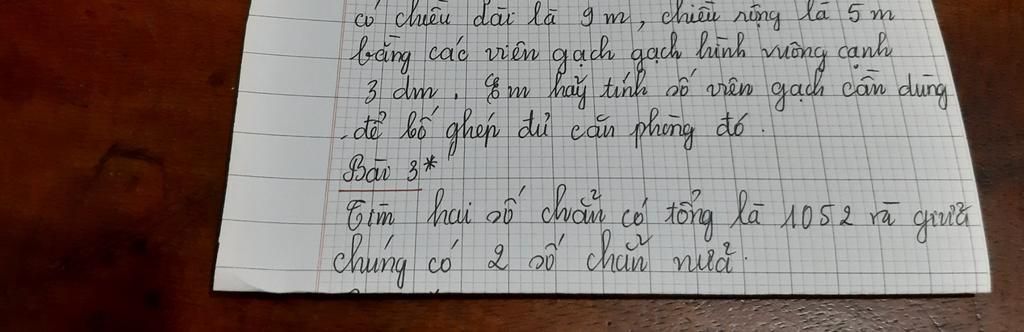 có chiều dài là 9 m, chiều rộng là 5 m
bằng các viên gạch gạch hình vuông cạnh
3 dm. Em hãy tính số viên gạch cần dùng
để bố ghép đủ căn phòng đó.
Bài 3*
Tìm hai số chẵn có tổng là 1052 và giữa
chúng có 2 số chẵn nữa.